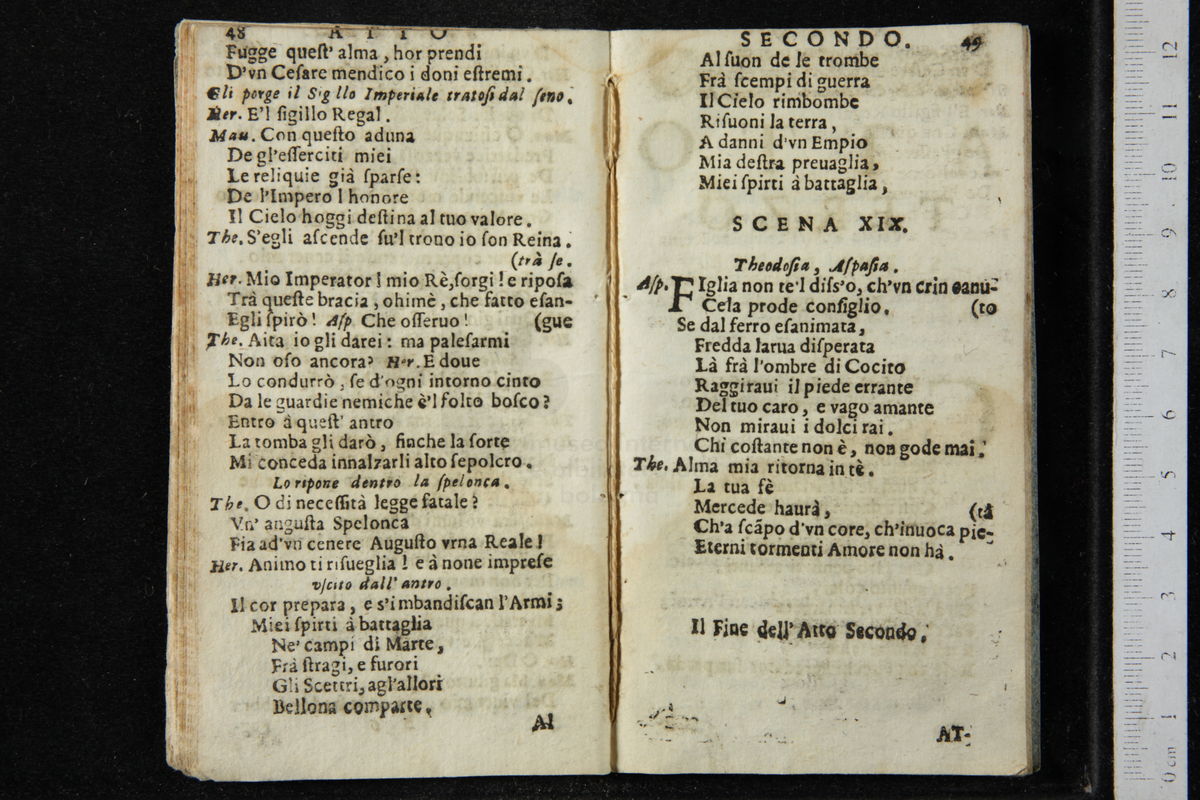 48 ATTO
Fugge quest' alma, hor prendi
D'vn Cesare mendico i doni estremi.
Gli porge il Sigillo Imperiale tratosi dal seno.
Her. E'l sigillo Regal.
Mau. Con questo aduna
De gl'esserciti miei
Le reliquie già sparse:
De l'Impero l honore
Il Cielo hoggi destina al tuo valore.
The. S'egli ascende su'l trono io son Reina.
(trà se.
Her. Mio Imperator! mio Rè, sorgi! e riposa
Trà queste bracia, ohimè, che fatto esan-
Egli spirò! Asp. Che osseruo! (gue
The. Aita io gli darei: ma palesarmi
Non oso ancora? Her. E doue
Lo condurrò, se d'ogni intorno cinto
Da le guardie nemiche è'l folto bosco?
Entro à quest' antro
La tomba gli darò, finche la sorte
Mi conceda innalzarli alto sepolcro.
Lo ripone dentro la spelonca.
The. O di necessità legge fatale?
Vn' angusta Spelonca
Fia ad'vn cenere Augusto vrna Reale!
Her. Animo ti risueglia! e à none imprese
vscito dall' antro.
Il cor prepara, e s'imbandiscan l'Armi;
Miei spirti à battaglia
Ne' campi di Marte,
Frà stragi, e furori
Gli Scettri, agl'allori
Bellona comparte.
Al
SECONDO. 49
Al suon de le trombe
Frà scempi di guerra
Il Cielo rimbombe
Risuoni la terra,
A danni d'vn Empio
Mia destra preuaglia,
Miei spirti à battaglia,
SCENA XIX.
Theodosia, Aspasia.
Asp. FIglia non te'l diss'o, ch'vn crin canu-
Cela prode consiglio. (to
Se dal ferro esanimata,
Fredda larua disperata
Là frà l'ombre di Cocito
Raggiraui il piede errante
Del tuo caro, e vago amante
Non miraui i dolci rai.
Chi costante non è, non gode mai.
The. Alma mia ritorna in tè.
La tua fè
Mercede haurà, (tà
Ch'a scãpo d'vn core, ch'inuoca pie-
Eterni tormenti Amore non hà.
Il Fine dell'Atto Secondo.
AT-
12
11
10
9
8
7
6
5
4
3
2
1
0 cm